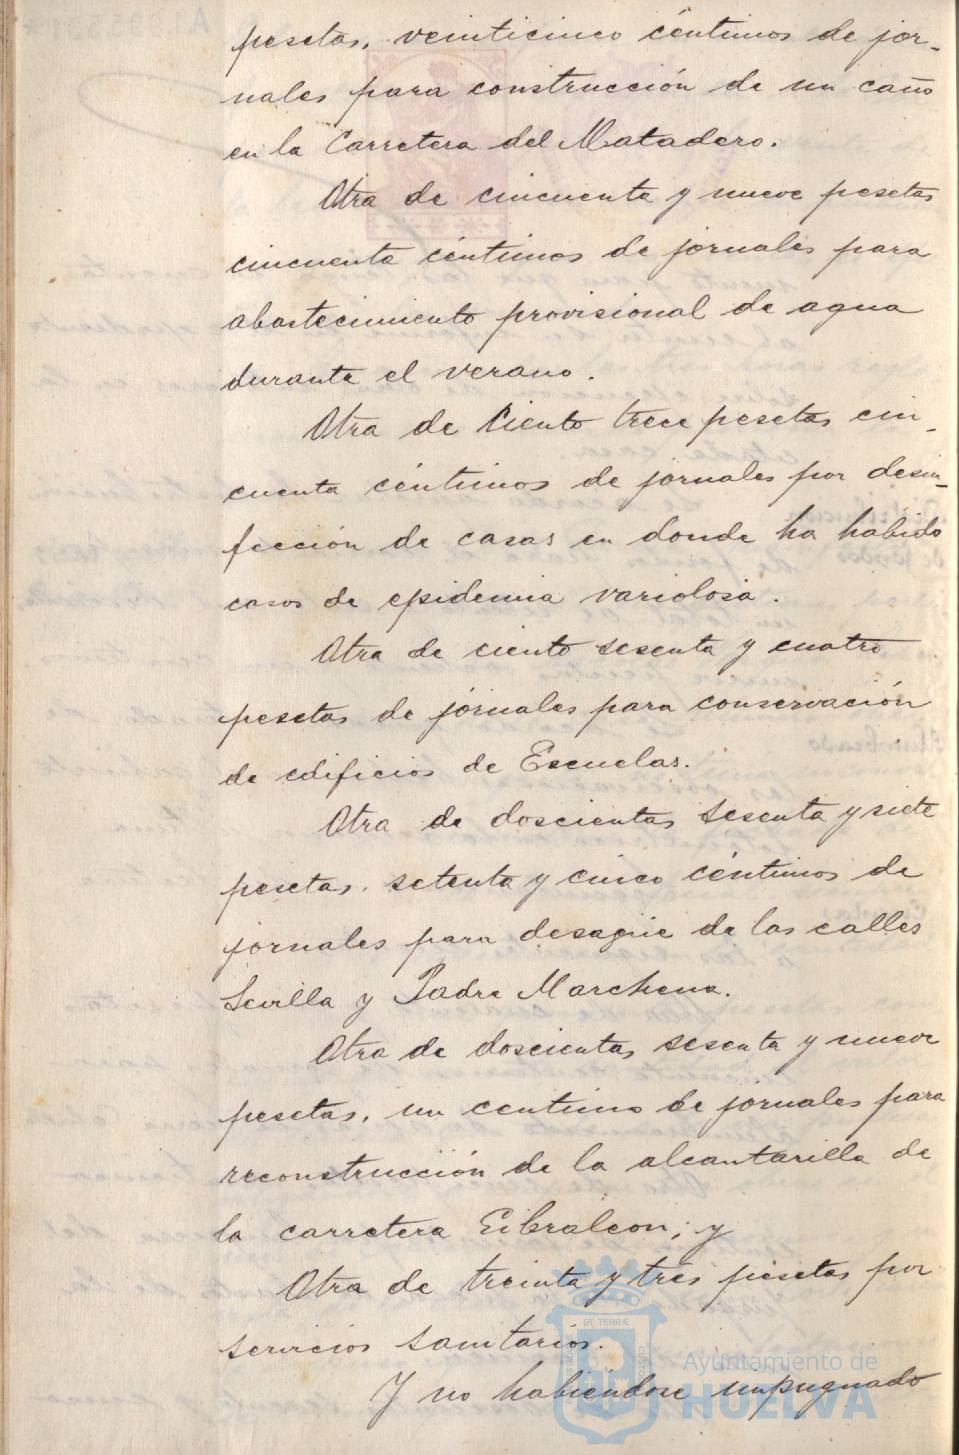 pesetas, veinticinco céntimos de jor-
nales para construcción de un caño
en la Carretera del Matadero.
Otra de cincuenta y nueve pesetas
cincuenta céntimos de jornales para
abastecimiento provisional de agua
durante el verano.
Otra de Ciento trece pesetas cin-
cuenta céntimos de jornales por desin-
fección de casas en donde ha habido
casos de epidemia variolosa.
Otra de ciento sesenta y cuatro
pesetas de jornales para conservación
de edificios de Escuelas.
Otra de doscientas sesenta y siete
pesetas, setenta y cinco céntimos de
jornales para desagüe de las calles
Sevilla y Padre Marchena.
Otra de doscientas sesenta y nueve
pesetas, un centimo de jornales para
reconstrucción de la alcantarilla de
la carretera Gibraleon; y
Otra de treinta y tres pesetas por
servicios sanitarios.
Y no habiéndose impugnado
Ayuntamiento de
HUELVA